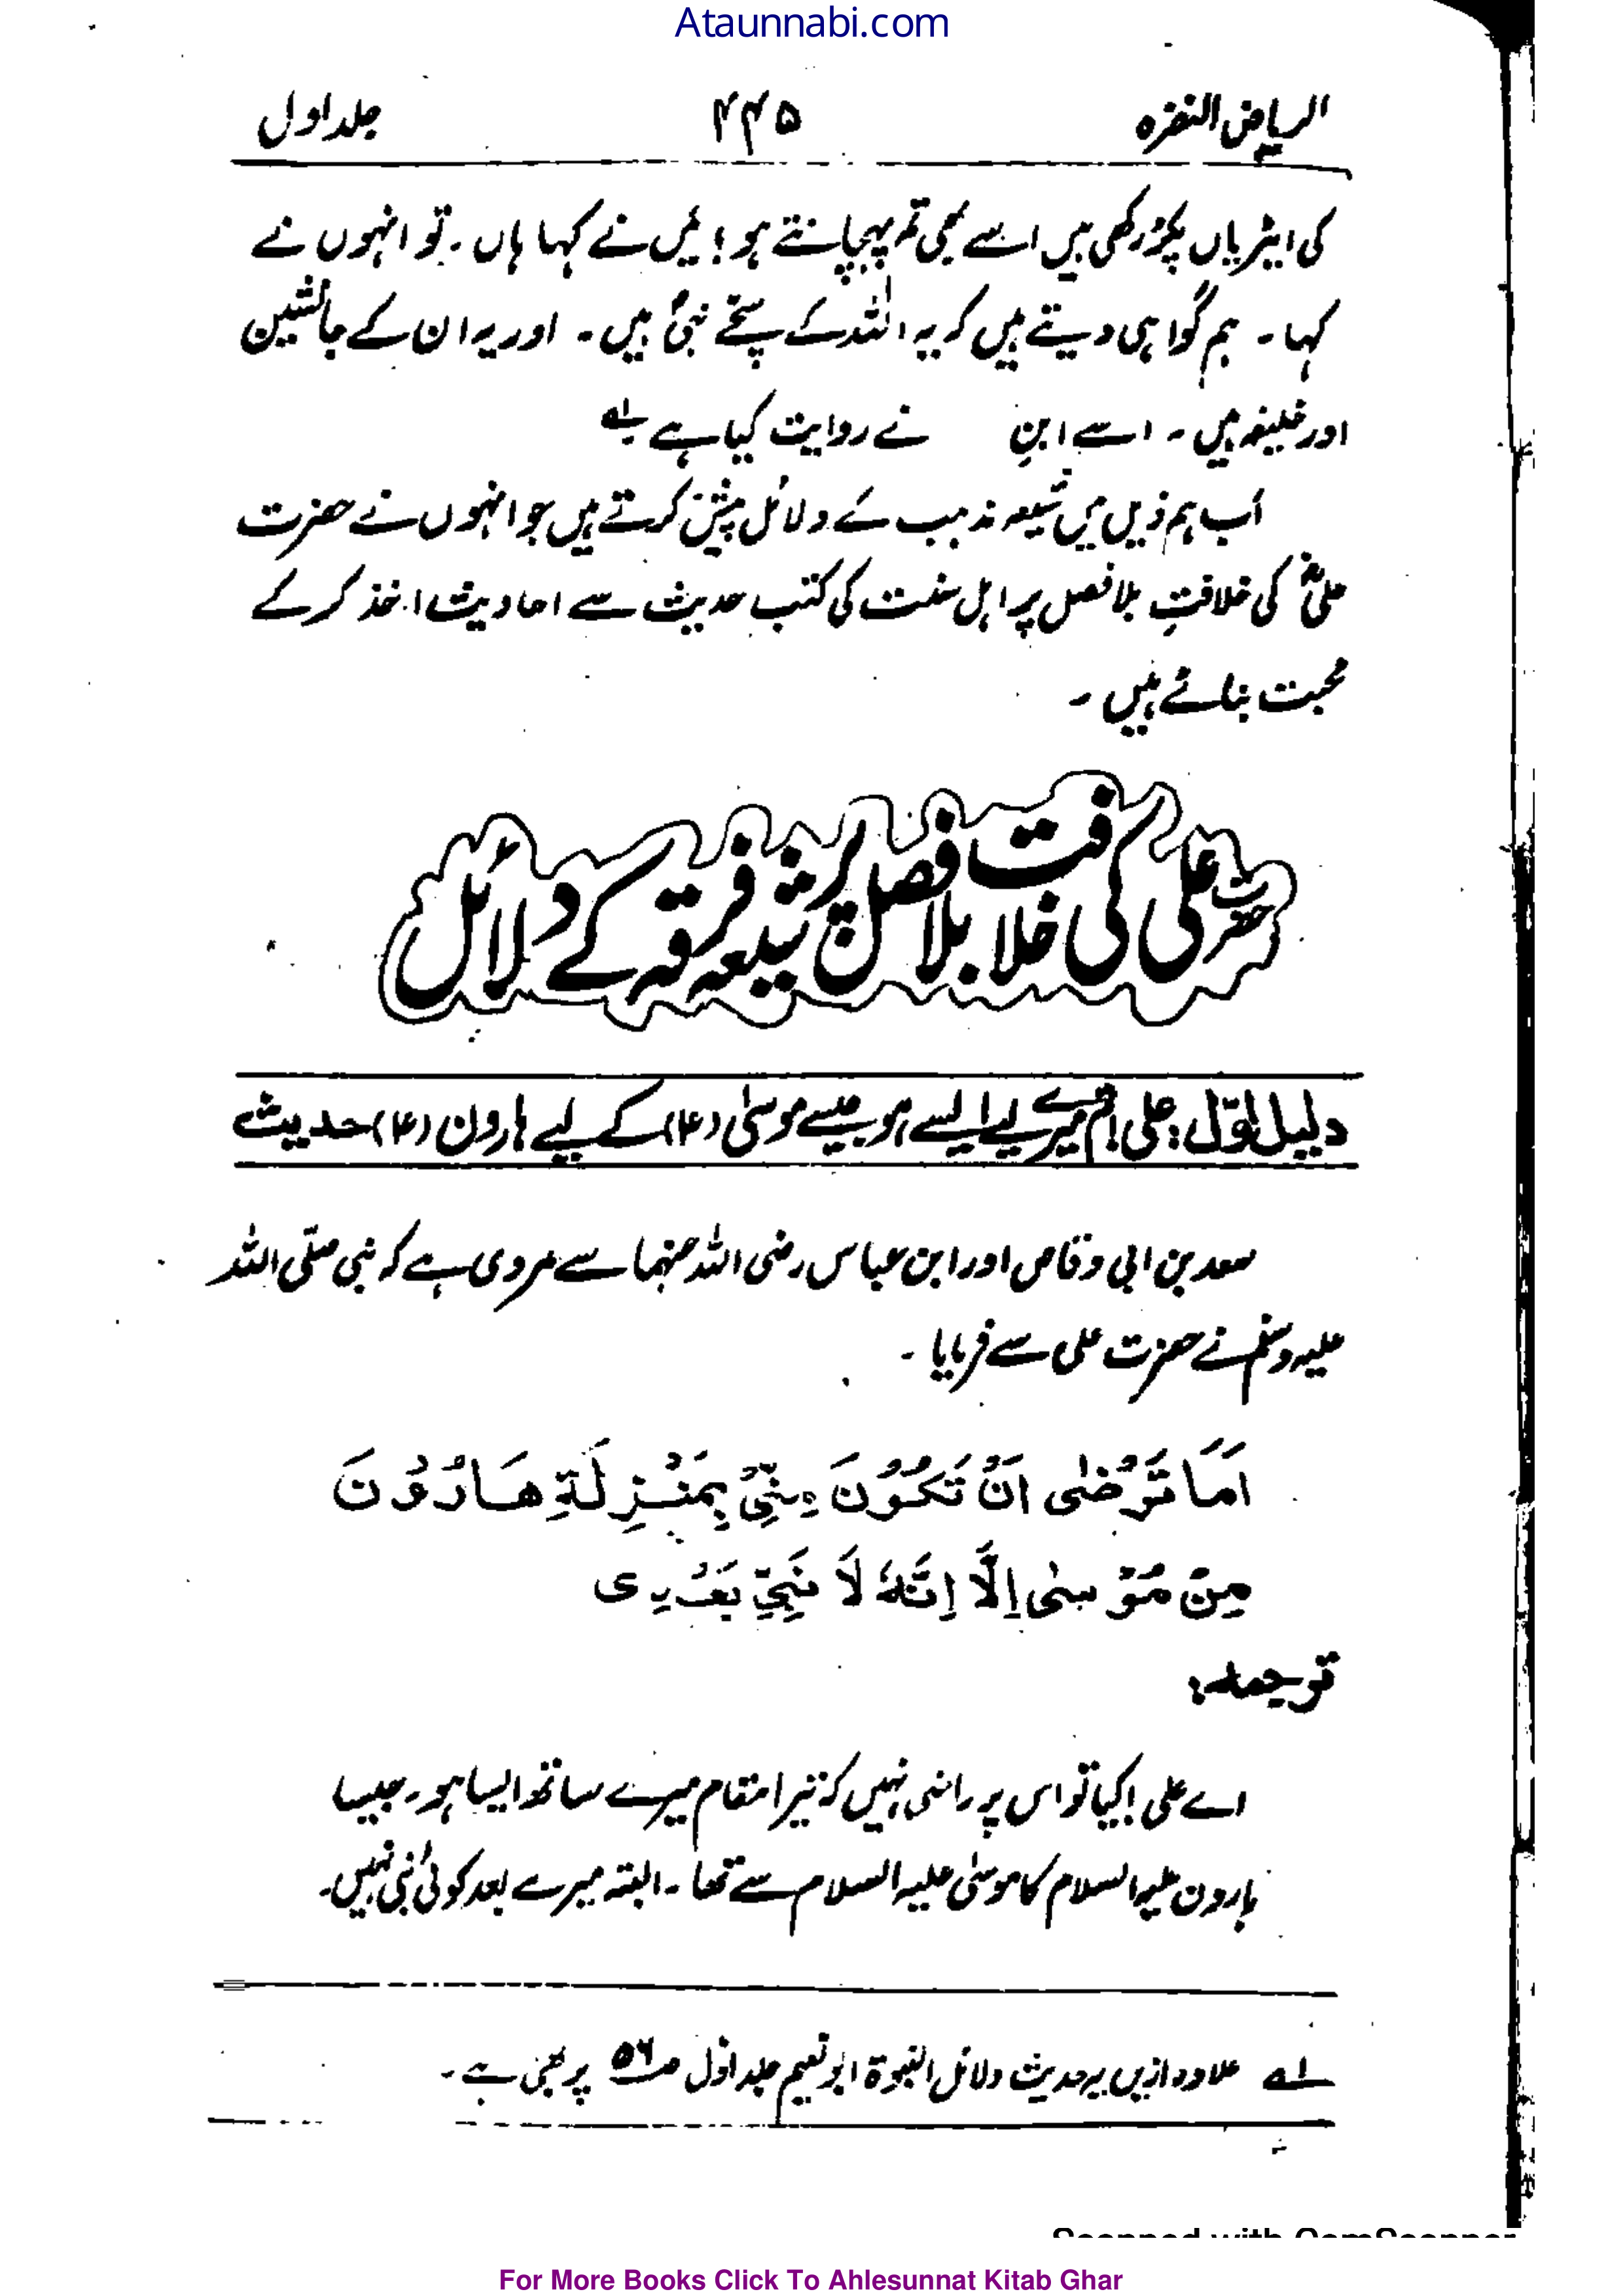 Ataunnabi.com
الریاض النضرہ ۴۴۵ جلد اول
کی ایڑیاں پکڑ رکھی ہیں اسے بھی تم پہچانتے ہو؟ میں نے کہا ہاں۔ تو انہوں نے
کہا۔ ہم گواہی دیتے ہیں کہ یہ اللہ کے سچے نبیؐ ہیں۔ اور یہ ان کے جانشین
اور خلیفہ ہیں۔ اسے ابنِ نے روایت کیا ہے لہ
اَب ہم ذیل میں شیعہ مذہب کے دلائل پیش کرتے ہیں جو انہوں نے حضرت
علیؓ کی خلافتِ بلا فصل پر اہل سنت کی کتب حدیث سے احادیث اخذ کر کے
حجت بنائے ہیں۔
حضرت علی کی خلافت بلا فصل پر شیعہ فرقہ کے دلائل
دلیل اوّل: علی! تم میرے لیے ایسے ہو جیسے موسیٰ (ع) کے لیے ہارون (ع) حدیث
سعد بن ابی وقاص اور ابن عباس رضی اللہ عنہما سے مروی ہے کہ نبی صلّی اللہ
علیہ وسلم نے حضرت علی سے فرمایا۔
اَمَا تَرْضٰى اَنْ تَكُوْنَ مِنِّىْ بِمَنْزِلَةِ هَارُوْنَ
مِنْ مُوْسٰى اِلَّا اِنَّهٗ لَا نَبِيَّ بَعْدِى
ترجمہ:
اے علی! کیا تو اس پر راضی نہیں کہ تیرا مقام میرے ساتھ ایسا ہو۔ جیسا
ہارون علیہ السلام کا موسیٰ علیہ السلام سے تھا۔ البتہ میرے بعد کوئی نبی نہیں۔
لہ علاوہ ازیں یہ حدیث دلائل النبوۃ ابو نعیم جلد اوّل ص ۵۶ پر بھی ہے۔
Scanned with CamScanner
For More Books Click To Ahlesunnat Kitab Ghar